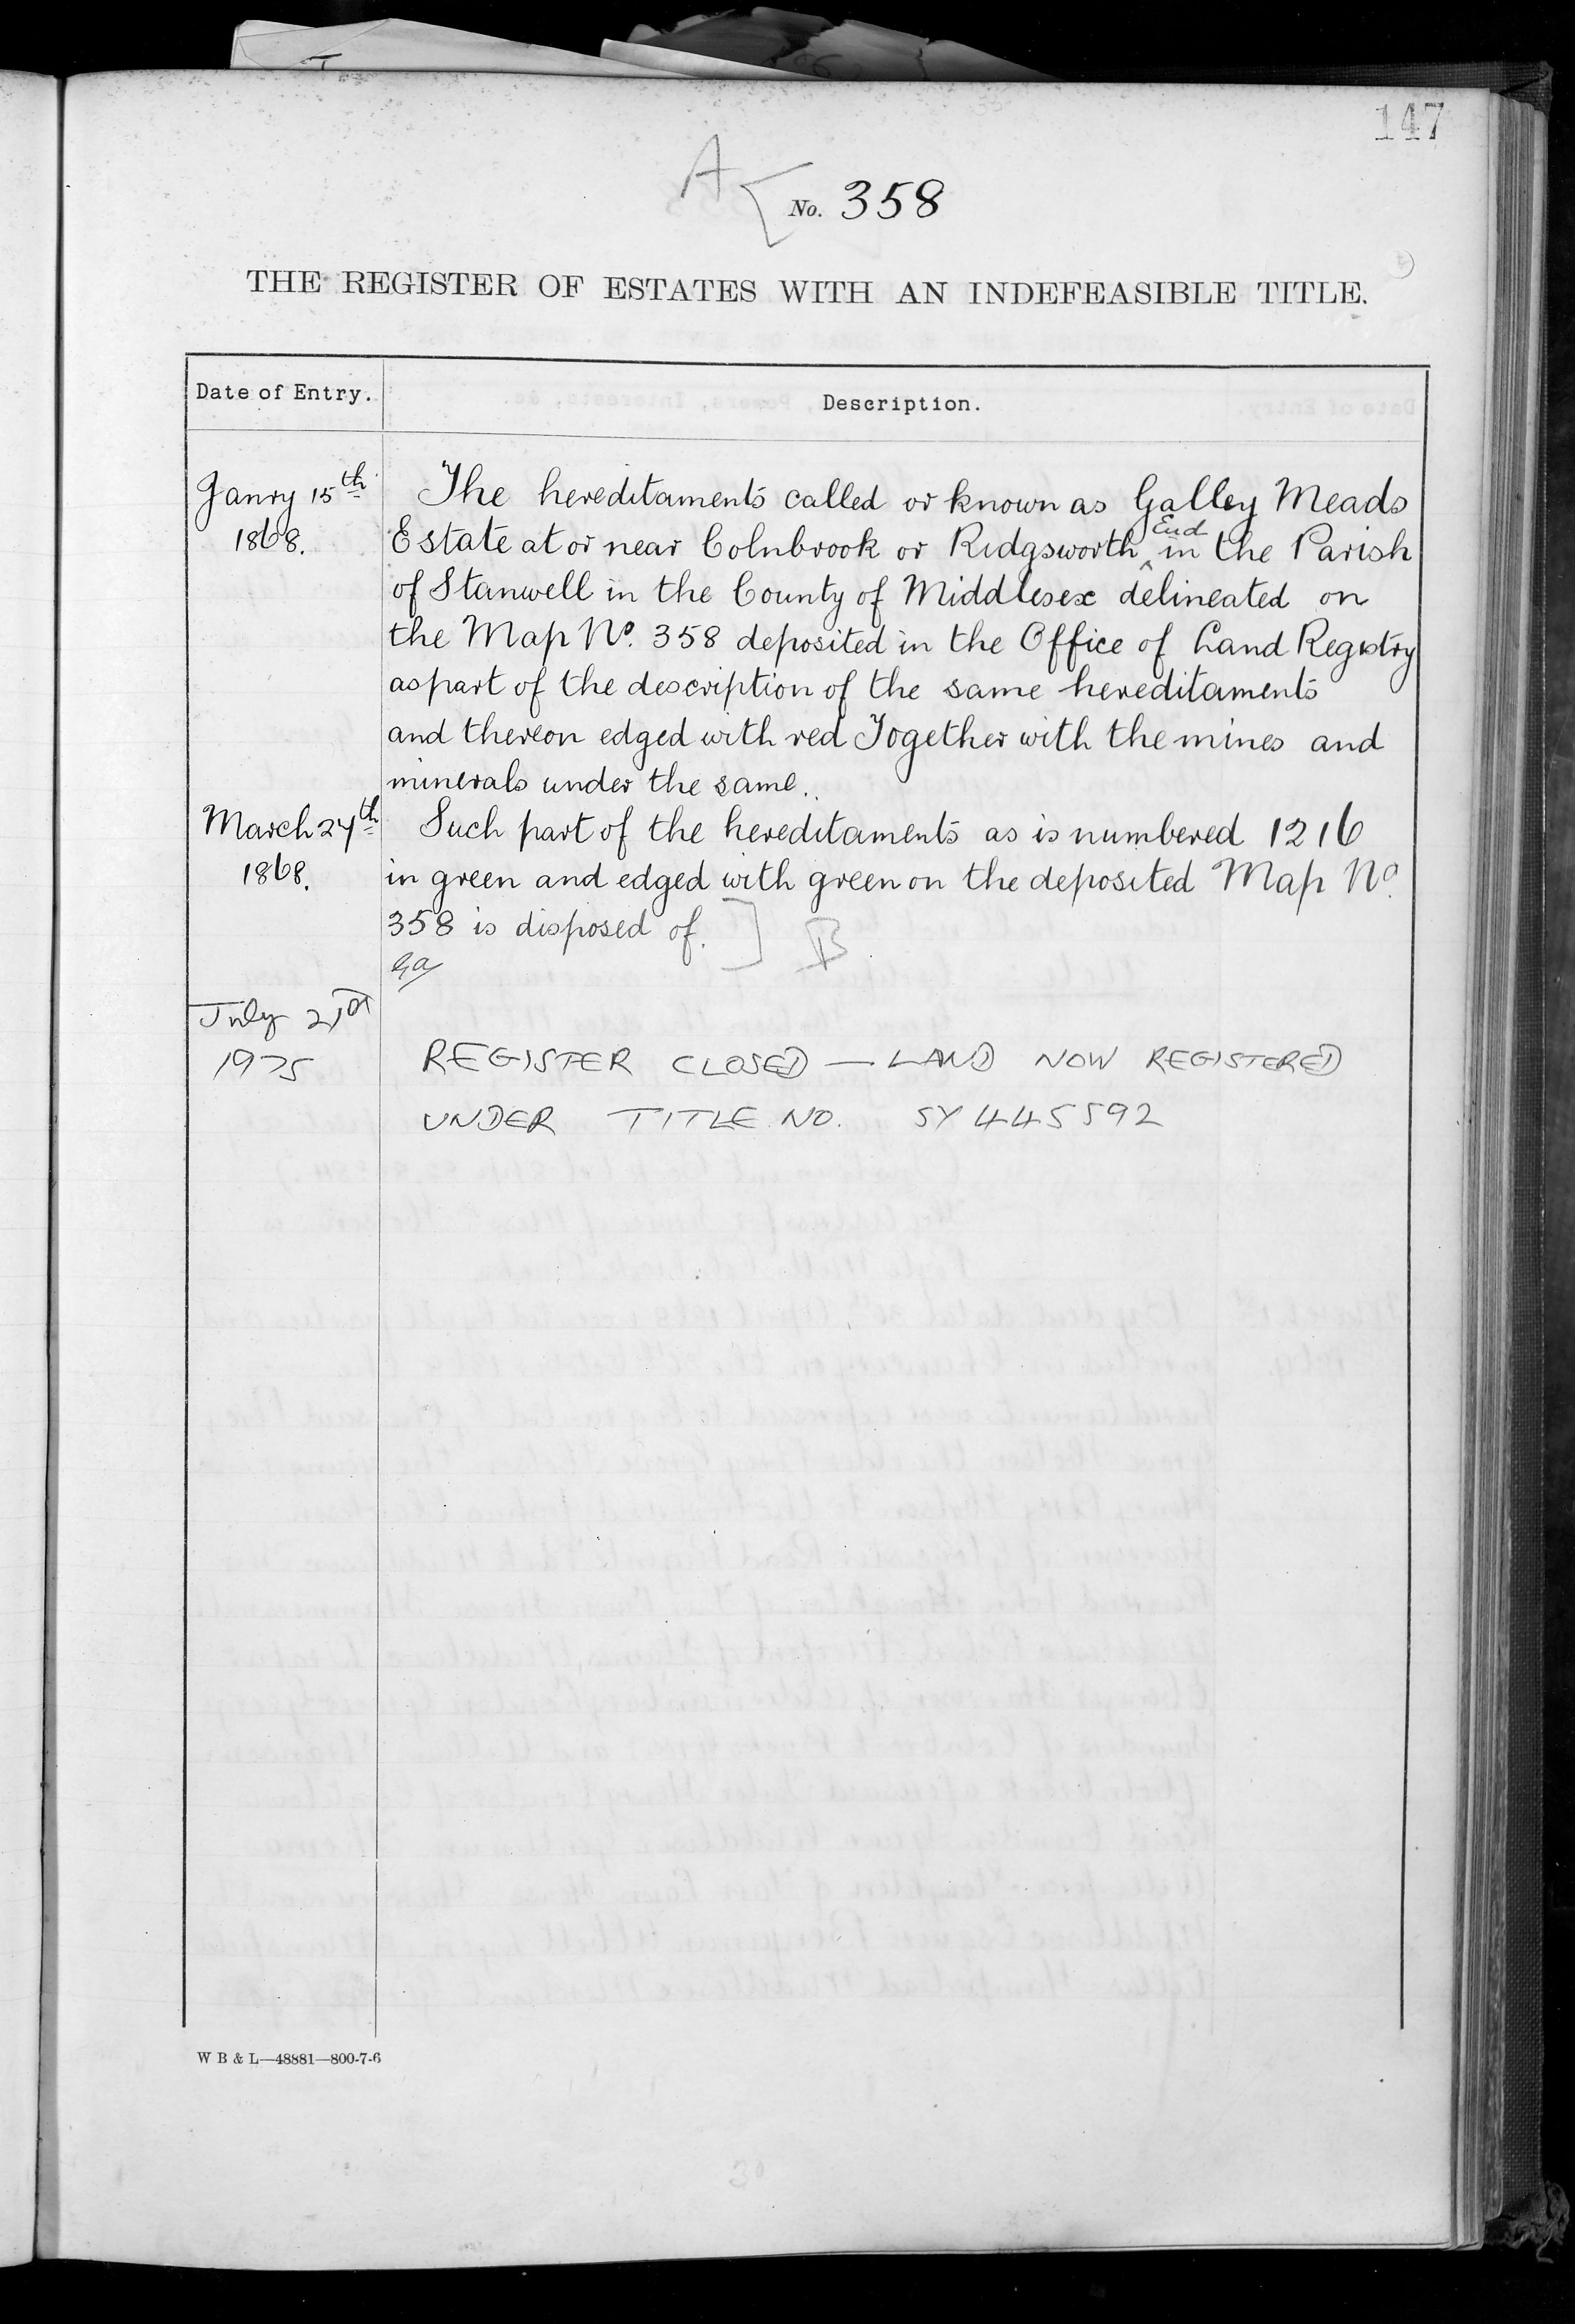 147
A [ No. 358
THE REGISTER OF ESTATES WITH AN INDEFEASIBLE TITLE.
Date of Entry. Description.
Janry 15th The hereditaments called or known as Galley Meads
1868. Estate at or near Colnbrook or Ridgsworth ^End in the Parish
of Stanwell in the County of Middlesex delineated on
the Map No. 358 deposited in the Office of Land Registry
as part of the description of the same hereditaments
and thereon edged with red Together with the mines and
minerals under the same.
March 27th Such part of the hereditaments as is numbered 1216
1868. in green and edged with green on the deposited Map No.
358 is disposed of. ] B
July 21st
1975 REGISTER CLOSED — LAND NOW REGISTERED
UNDER TITLE NO. SY 445592
W B & L—48881—800-7-6